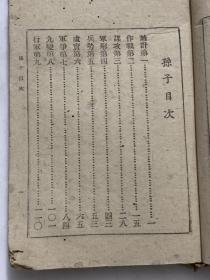 孫子目次
始計第一……一
作戰第二……一五
謀攻第三……二八
軍形第四……四三
兵勢第五……五三
虛實第六……六五
軍爭第七……八四
九變第八……一〇一
行軍第九……一一〇
孫子目次
一